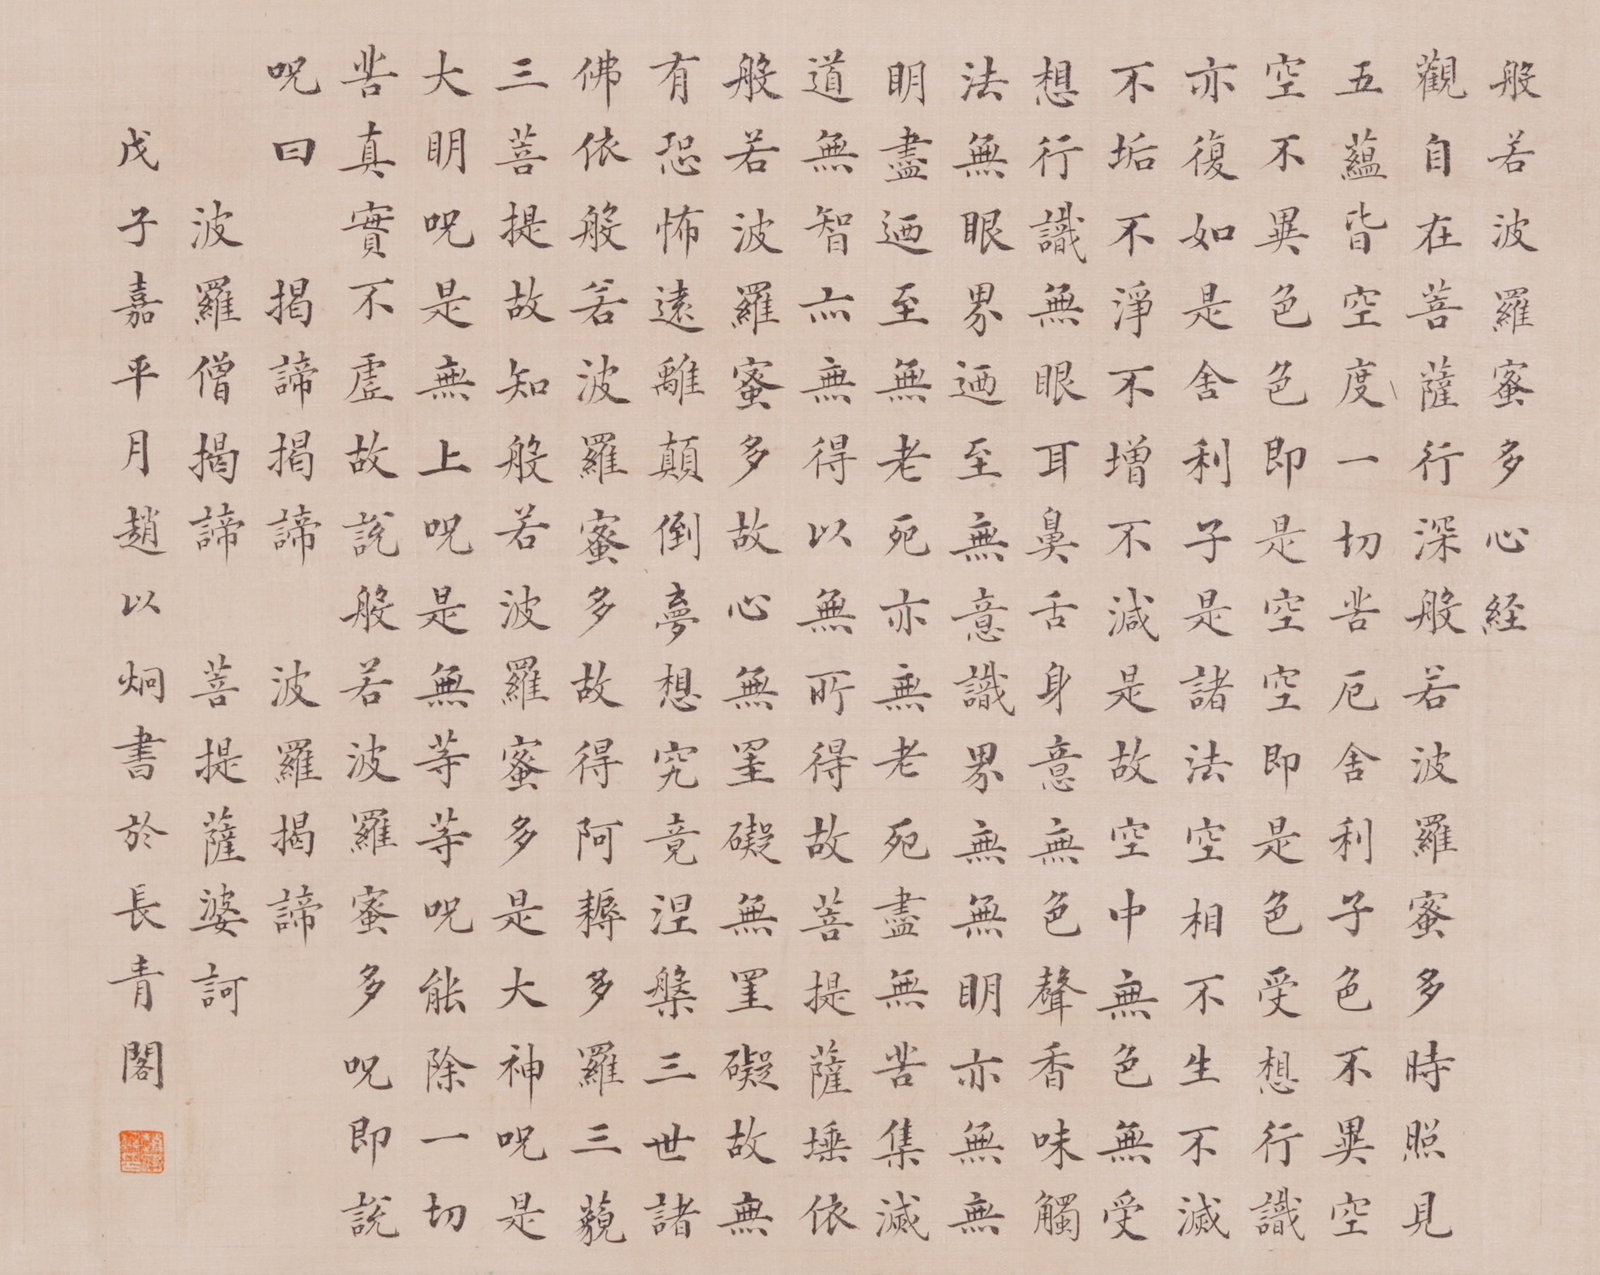 般若波羅蜜多心経
觀自在菩薩行深般若波羅蜜多時照見
五蘊皆空度一切苦厄舍利子色不異空
空不異色色即是空空即是色受想行識
亦復如是舍利子是諸法空相不生不滅
不垢不淨不增不減是故空中無色無受
想行識無眼耳鼻舌身意無色聲香味觸
法無眼界迺至無意識界無無明亦無無
明盡迺至無老死亦無老死盡無苦集滅
道無智亦無得以無所得故菩提薩埵依
般若波羅蜜多故心無罣礙無罣礙故無
有恐怖遠離顛倒夢想究竟涅槃三世諸
佛依般若波羅蜜多故得阿耨多羅三藐
三菩提故知般若波羅蜜多是大神呪是
大明呪是無上呪是無等等呪能除一切
苦真實不虛故說般若波羅蜜多呪即說
呪曰 揭諦揭諦 波羅揭諦
波羅僧揭諦 菩提薩婆訶
戊子嘉平月趙以炯書於長青閣